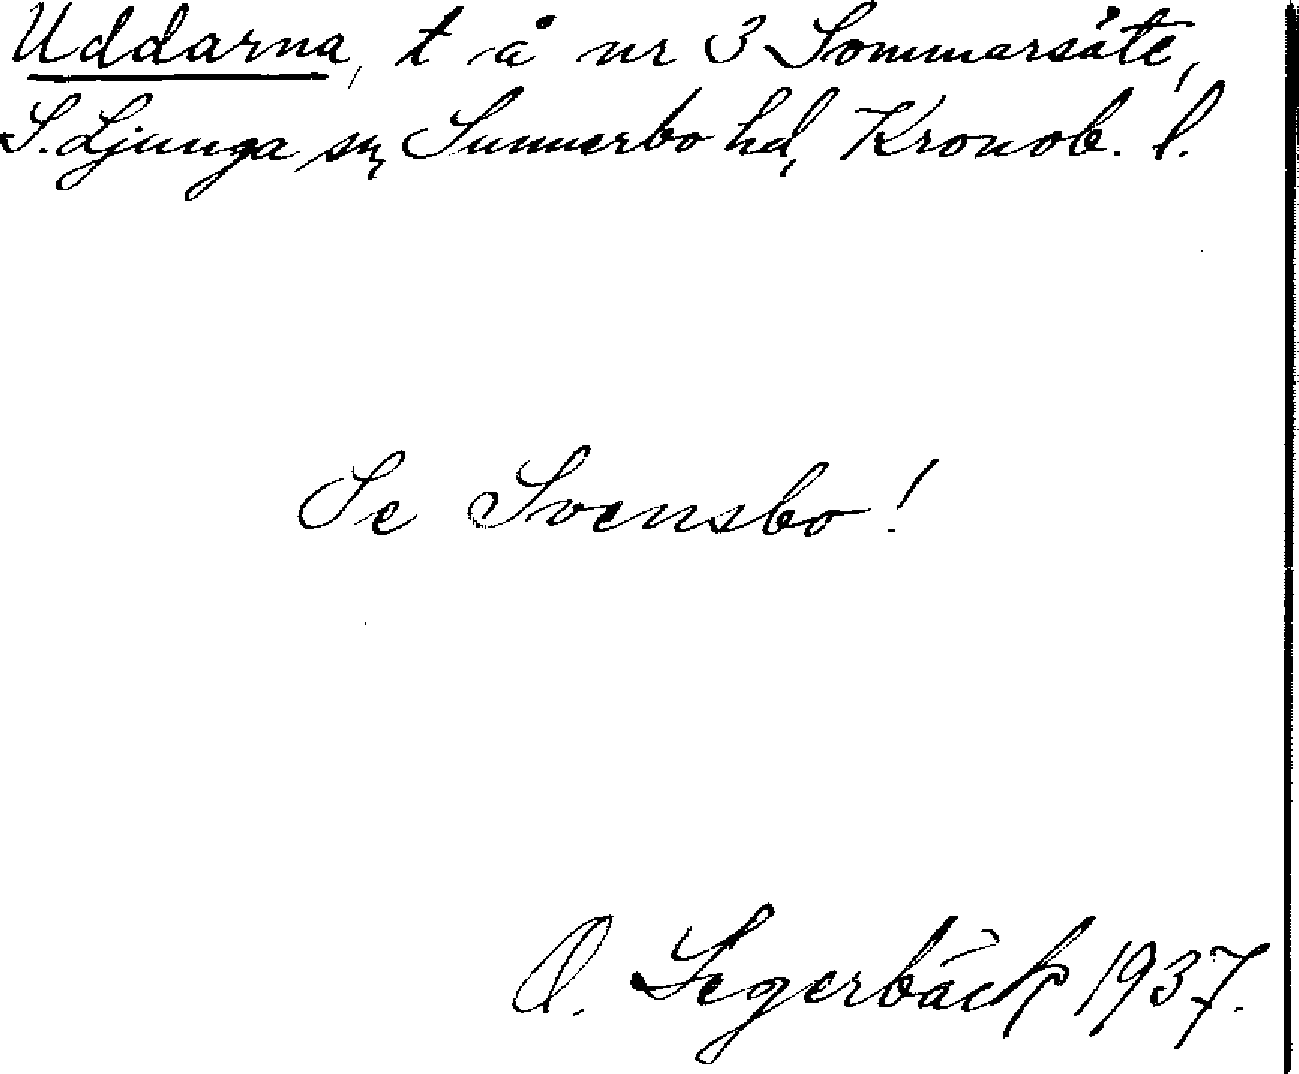 Uddarna, t å nr 3 Sommarsäte,
S. Ljunga sn, Sunnerbo hd, Kronob. l.
Se Svensbo!
O. Segerbäck 1937.